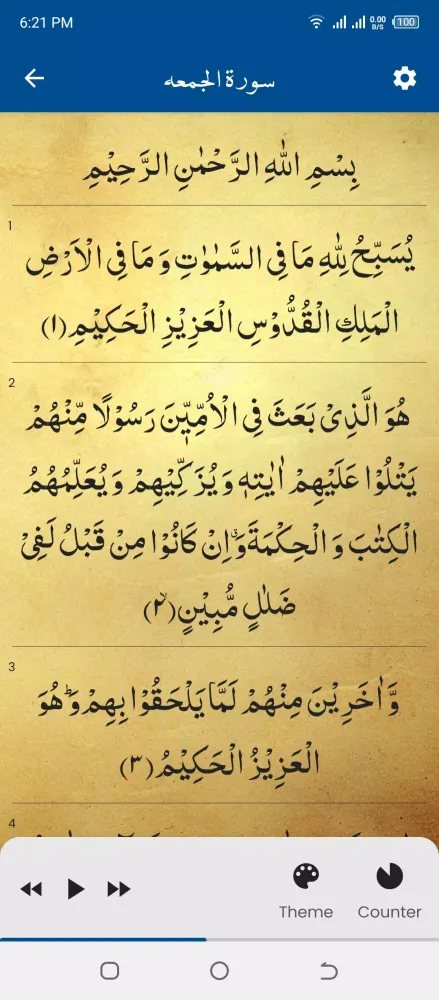 6:21 PM 0.00 B/S 100
سورة الجمعه
بِسْمِ اللّٰهِ الرَّحْمٰنِ الرَّحِيْمِ
1
يُسَبِّحُ لِلّٰهِ مَا فِى السَّمٰوٰتِ وَ مَا فِى الْاَرْضِ
الْمَلِكِ الْقُدُّوْسِ الْعَزِيْزِ الْحَكِيْمِ(۱)
2
هُوَ الَّذِىْ بَعَثَ فِى الْاُمِّيّٖنَ رَسُوْلًا مِّنْهُمْ
يَتْلُوْا عَلَيْهِمْ اٰيٰتِهٖ وَ يُزَكِّيْهِمْ وَ يُعَلِّمُهُمُ
الْكِتٰبَ وَ الْحِكْمَةَۗ وَ اِنْ كَانُوْا مِنْ قَبْلُ لَفِىْ
ضَلٰلٍ مُّبِيْنٍ(۲)
3
وَّ اٰخَرِيْنَ مِنْهُمْ لَمَّا يَلْحَقُوْا بِهِمْؕ وَ هُوَ
الْعَزِيْزُ الْحَكِيْمُ(۳)
4
Theme Counter